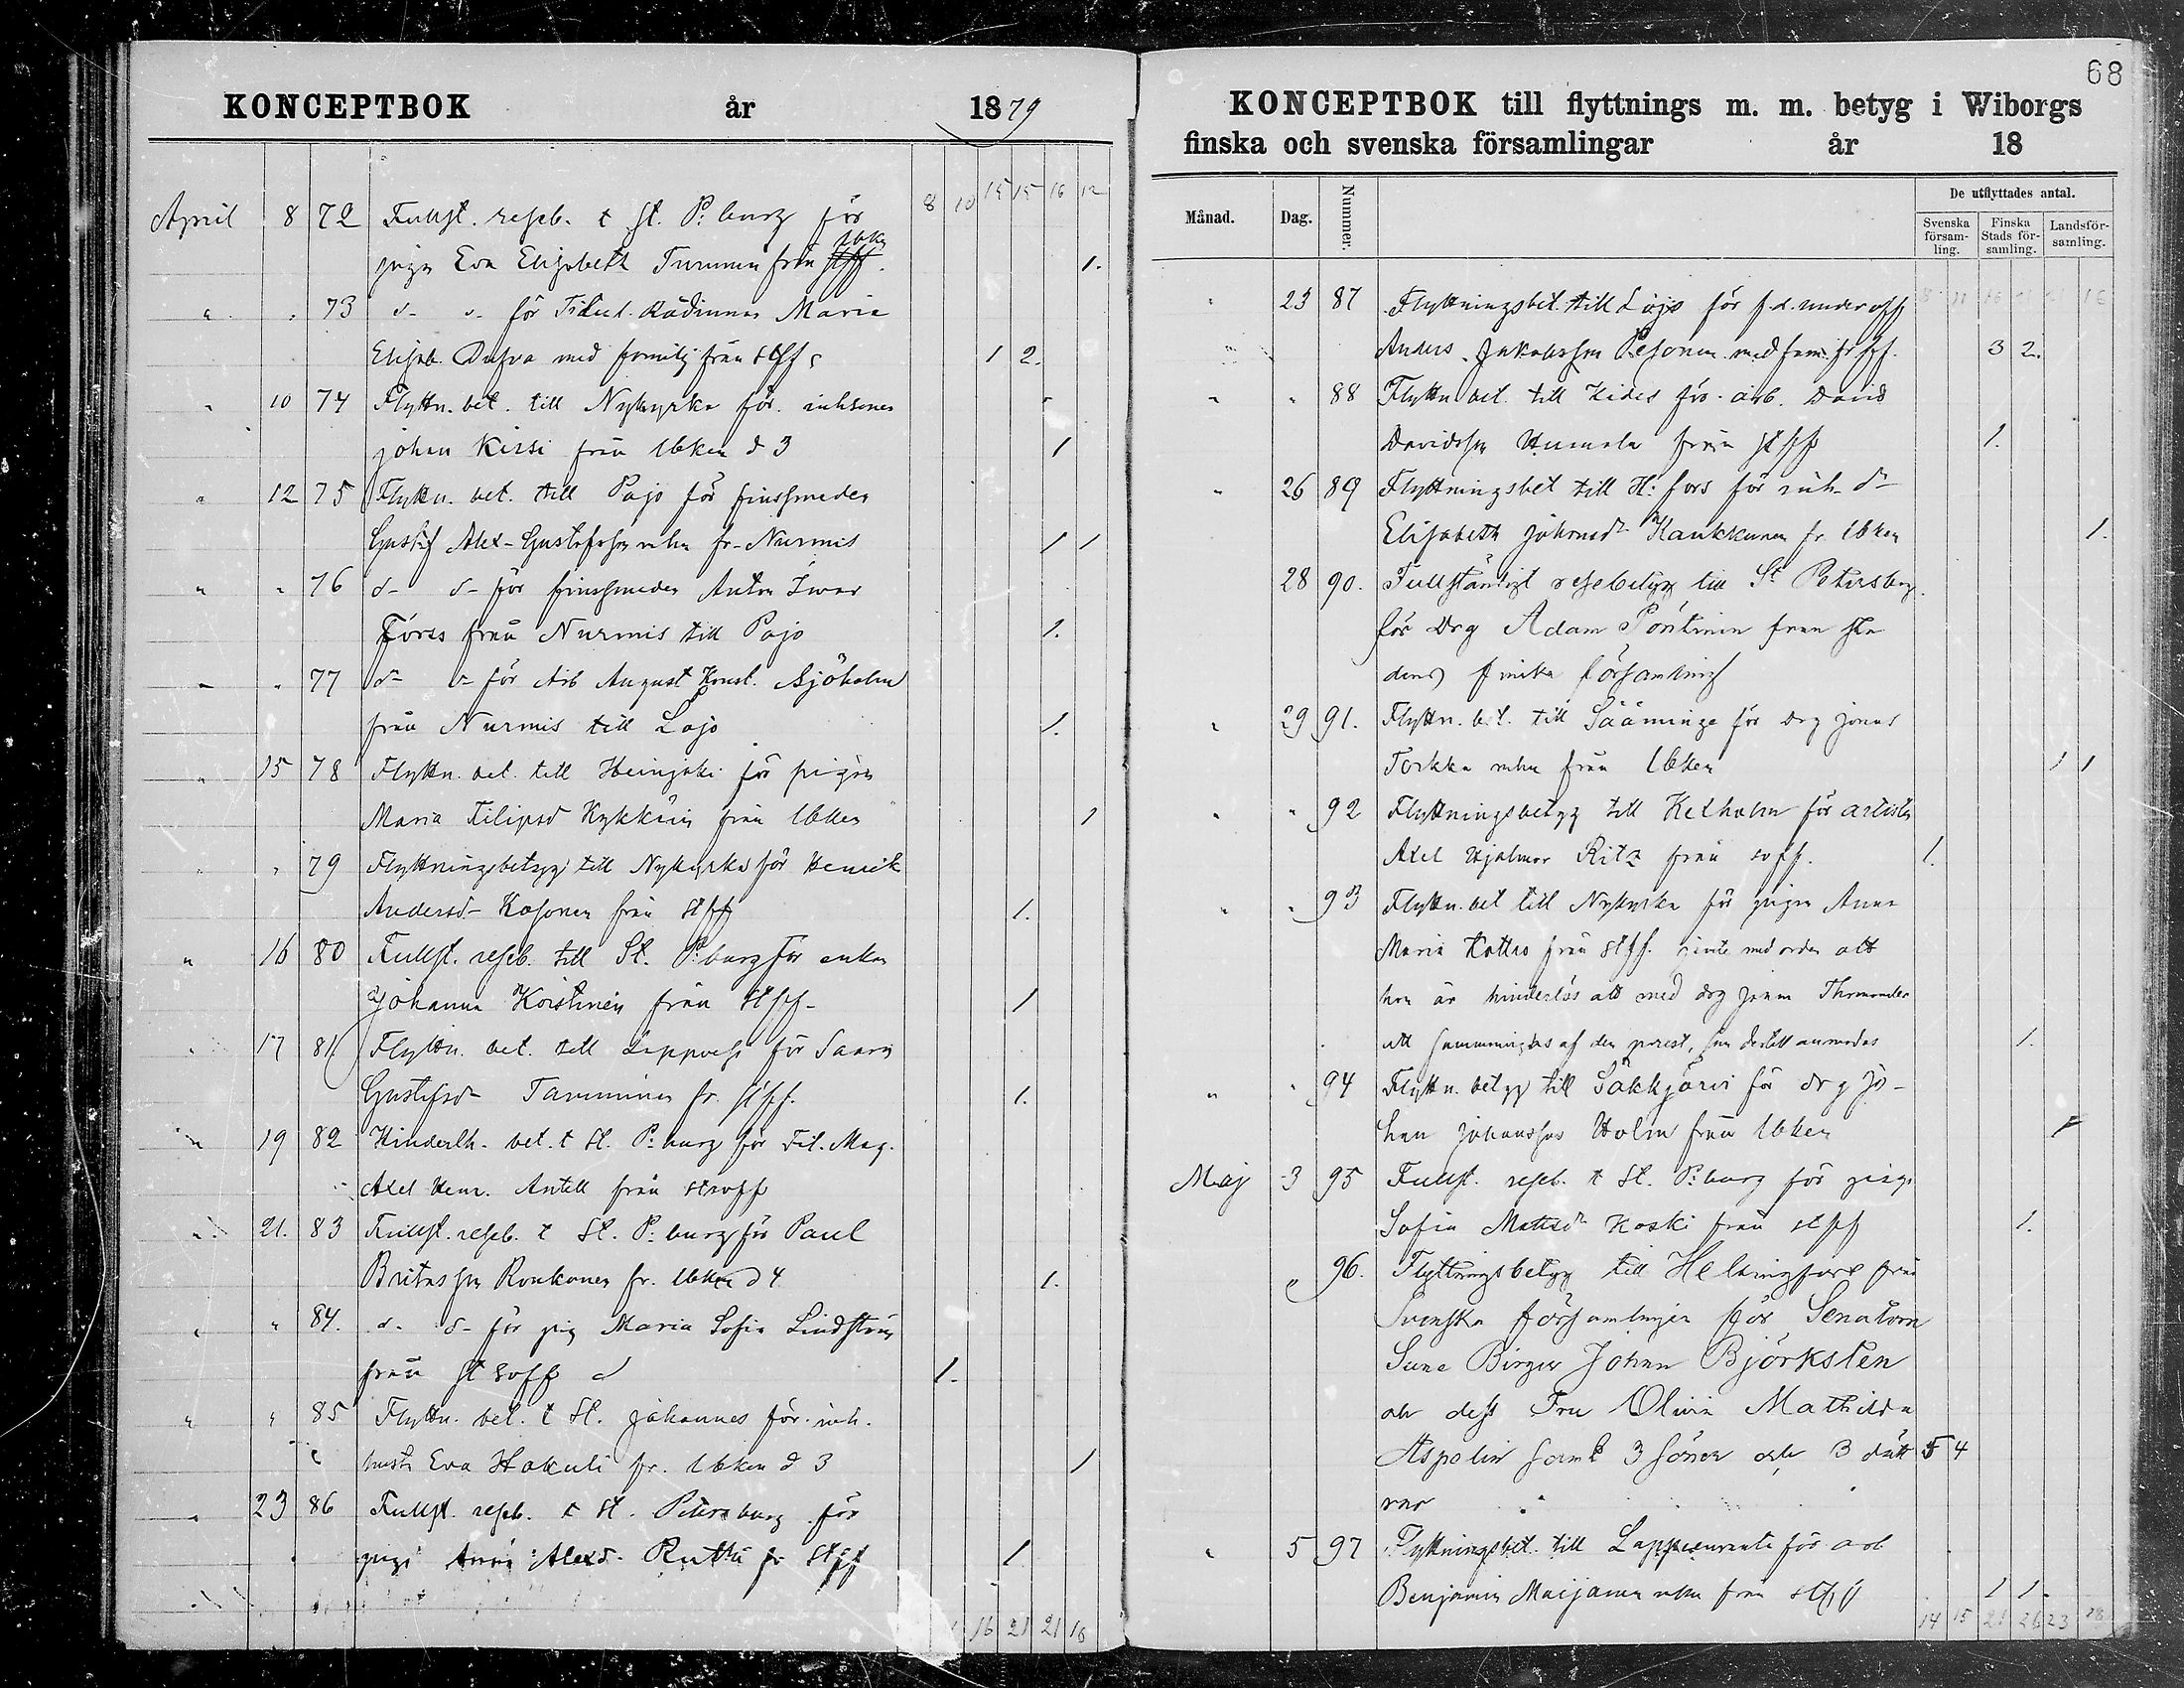 KONCEPTBOK år 1879
8 10 15 15 16 12
April 8 72 Fullst. reseb. t St. P:burg för
pigan Eva Elisabeth Turunen från lbkn stff. 1.
" " 73 d- o- för Titul. Rådinnan Maria
Elisab. Dufva med familj från stff 1 2.
" 10 74 Flyttn. bet. till Nykyrka för inhsonen
Johan Kirsi från lbken d 3 1
" 12 75 Flyttn. bet. till Pojo för finsmeden
Gustaf Alex. Gustafsson m hu fr. Nurmis 1 1
" " 76 d- o- för finsmeden Anton Ivar
Förss från Nurmis till Pojo 1.
" " 77 d- o- för Arb August Konst. Sjöholm
från Nurmis till Lojo 1.
" 15 78 Flyttn. bet. till Heinjoki för pigan
Maria Filipsd Kykkäin från lbken 1
" " 79 Flyttningsbetyg till Nykyrka för Henrik
Anderss- Kosonen från stff 1.
" 16 80 Fullst. reseb. till St. P:burg för enkan
Johanna Koistinen från stff- 1
" 17 81 Flyttn. bet. till Lappvesi för Saara
Gustafsd- Tamminen fr. stff. 1.
" 19 82 Hinderlh. bet. t St. P:burg för Fil. Mag.
Axel Henr. Antell från stsvff
" 21. 83 Fullst. reseb. t St. P:burg för Paul
Britasson Ronkanen fr. lbken d 4 1.
" " 84. d- o- för pig Maria Sofia Lindström
från st svff 1.
" " 85 Flyttn. bet. t St. Johannes för inh.
hust. Eva Hakuli fr. lbken d 3 1
" 23 86 Fullst. reseb. t St. Petersburg för
pigan Anna Alexd. Ruthu fr stff 1
16 21 21 18
68
KONCEPTBOK till flyttnings m. m. betyg i Wiborgs
finska och svenska församlingar år 18
Månad. Dag. Nummer. De utflyttades antal.
Svenska församling. Finska Stads församling. Landsförsamling.
" 23 87 Flyttningsbet. till Lojo för f.d. underoff
Anders Jakobsson Pesonen med fam. fr stff. 3 2.
" " 88 Flyttn bet. till Kides för arb. David
Davidsson Humala från stff 1.
" 26 89 Flyttningsbet till H:fors för inh. dr
Elisabeth Johansdr Kaukkunen fr. lbken 1.
28 90. Fullständigt resebetyg till St Petersburg
för Drg Adam Pöntinen från sta
dens finska församling
" 29 91. Flyttn. bet. till Sääminge för drg Jonas
Torkka m hu från lbken 1 1
" " 92 Flyttningsbetyg till Kexholm för artisten
Axel Hjalmar Ritz från svff. 1.
" " 93 Flyttn. bet till Nykyrka för pigan Anna
Maria Kottas från stff. med orden att
hon är hinderlös att med drg Johan Thomander
att sammanvigas af den prest, som dertill anmodas 1.
" " 94 Flyttn. betyg till Säkkjärvi för drg Jo-
han Johansson Holm från lbken 1
Maj 3 95 Fullst. reseb. t St. P:burg för piga
Sofia Matsdr Koski från stff 1.
" 96. Flyttningsbetyg till Helsingfors från
Svenska församlingen för Senatorn
Sune Birger Johan Björksten
och dess Fru Olivia Mathilda
Aspelin samt 3 söner och 3 dätt 5 4
rar
" 5 97 Flyttningsbet. till Lappeenranta för arb
Benjamin Maijanen m hu från stff 1 1
14 15 21 26 23 28